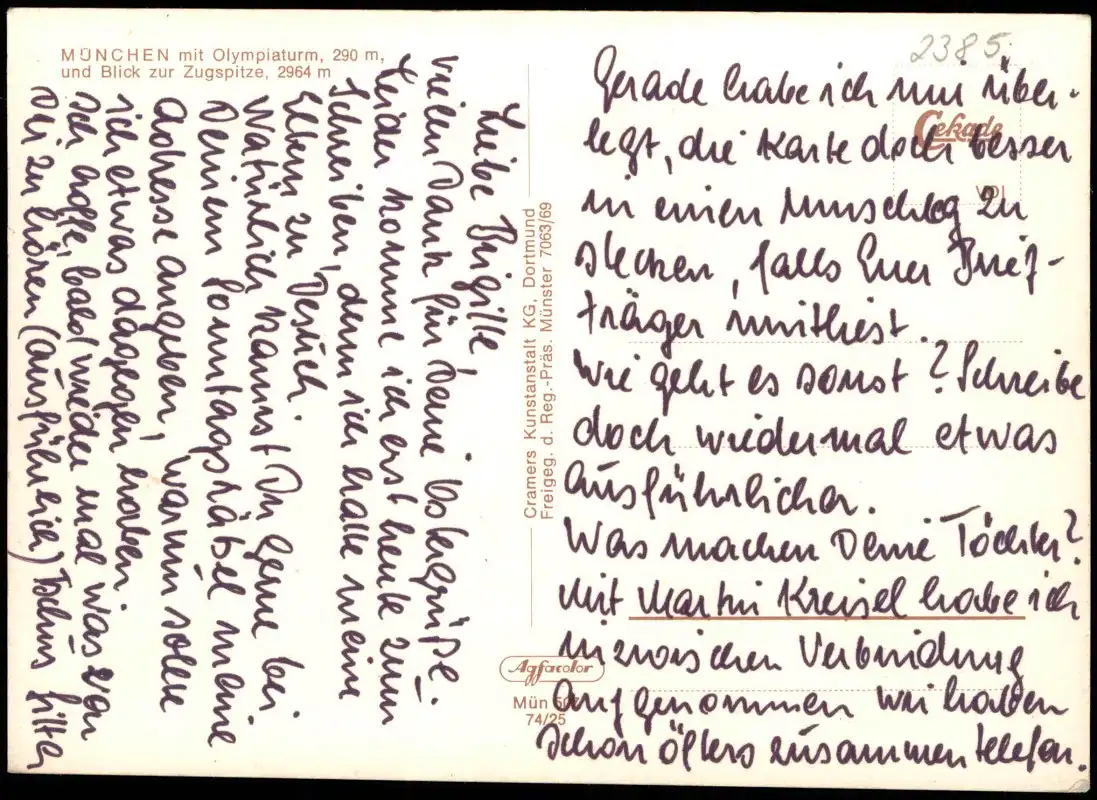 MÜNCHEN mit Olympiaturm, 290 m,
und Blick zur Zugspitze, 2964 m
Liebe Brigitte,
vielen Dank für Deine Ostergrüße.
Leider komme ich erst heute zum
Schreiben, denn ich hatte meine
Eltern zu Besuch.
Natürlich kannst Du gerne bei
Deinem Sonntagsrätsel meine
Adresse angeben, warum sollte
ich etwas dagegen haben.
Ich hoffe, bald wieder mal was von
Dir zu hören (ausführlich) Tschüs
Cramers Kunstanstalt KG, Dortmund
Freigeg. d. Reg.-Präs. Münster 7063/69
Agfacolor
Mün
74/25
2385
Cekade
Gerade habe ich mir über-
legt, die Karte doch besser
in einen Umschlag zu
stecken, falls Euer Brief-
träger mitliest.
Wie geht es sonst? Schreibe
doch wiedermal etwas
ausführlicher.
Was machen Deine Töchter?
Mit Martin Kreisel habe ich
inzwischen Verbindung
aufgenommen wir haben
schon öfters zusammen telefon.